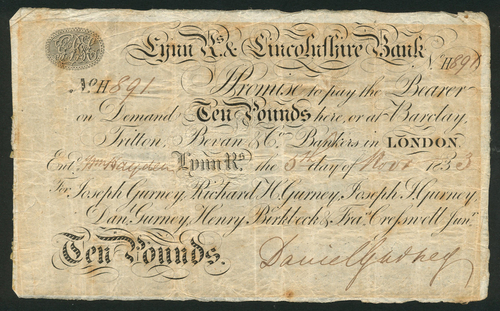 Lynn Rs. & Lincolnshire Bank
No H891
No H891 I Promise to pay the Bearer
on Demand Ten Pounds here, or at Barclay,
Tritton, Bevan & Co. Bankers in LONDON.
Entd. Wm Hayden Lynn Rs. the 5th day of Novr 1833
For Joseph Gurney, Richard H. Gurney, Joseph J. Gurney,
Danl. Gurney, Henry Birkbeck & Fras. Cresswell Junr.
Ten Pounds. Daniel Gurney